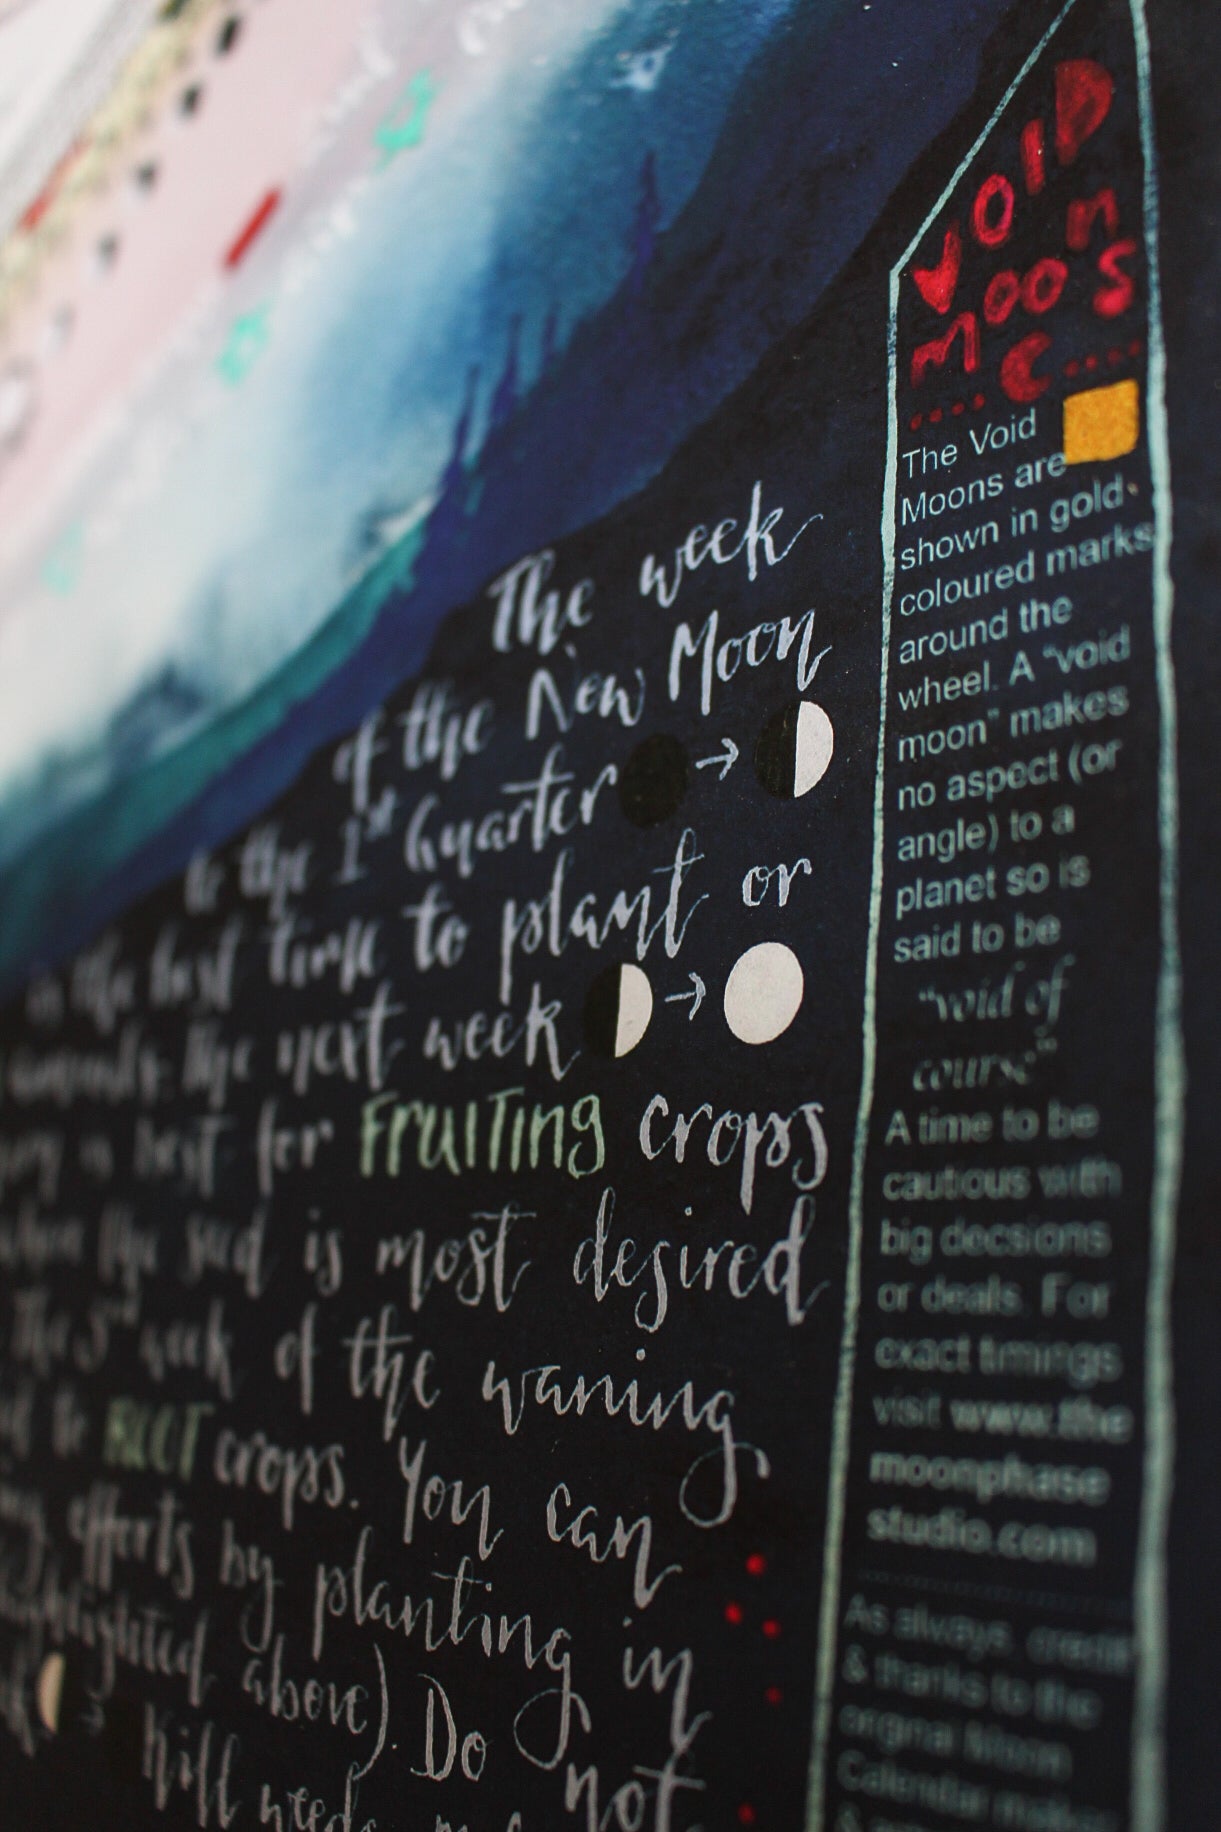 The week
of the New Moon
to the 1st Quarter →
is the best time to plant or
the next week →
is best for FRUITING crops
when the seed is most desired
The 3rd week of the waning
ROOT crops. You can
efforts by planting in
highlighted above). Do not
Kill weeds
VOID
MOONS
The Void
Moons are
shown in gold-
coloured marks
around the
wheel. A “void
moon” makes
no aspect (or
angle) to a
planet so is
said to be
“void of
course”
A time to be
cautious with
big decsions
or deals. For
exact timings
visit www.the
moonphase
studio.com
As always, credit
& thanks to the
original Moon
Calendar maker